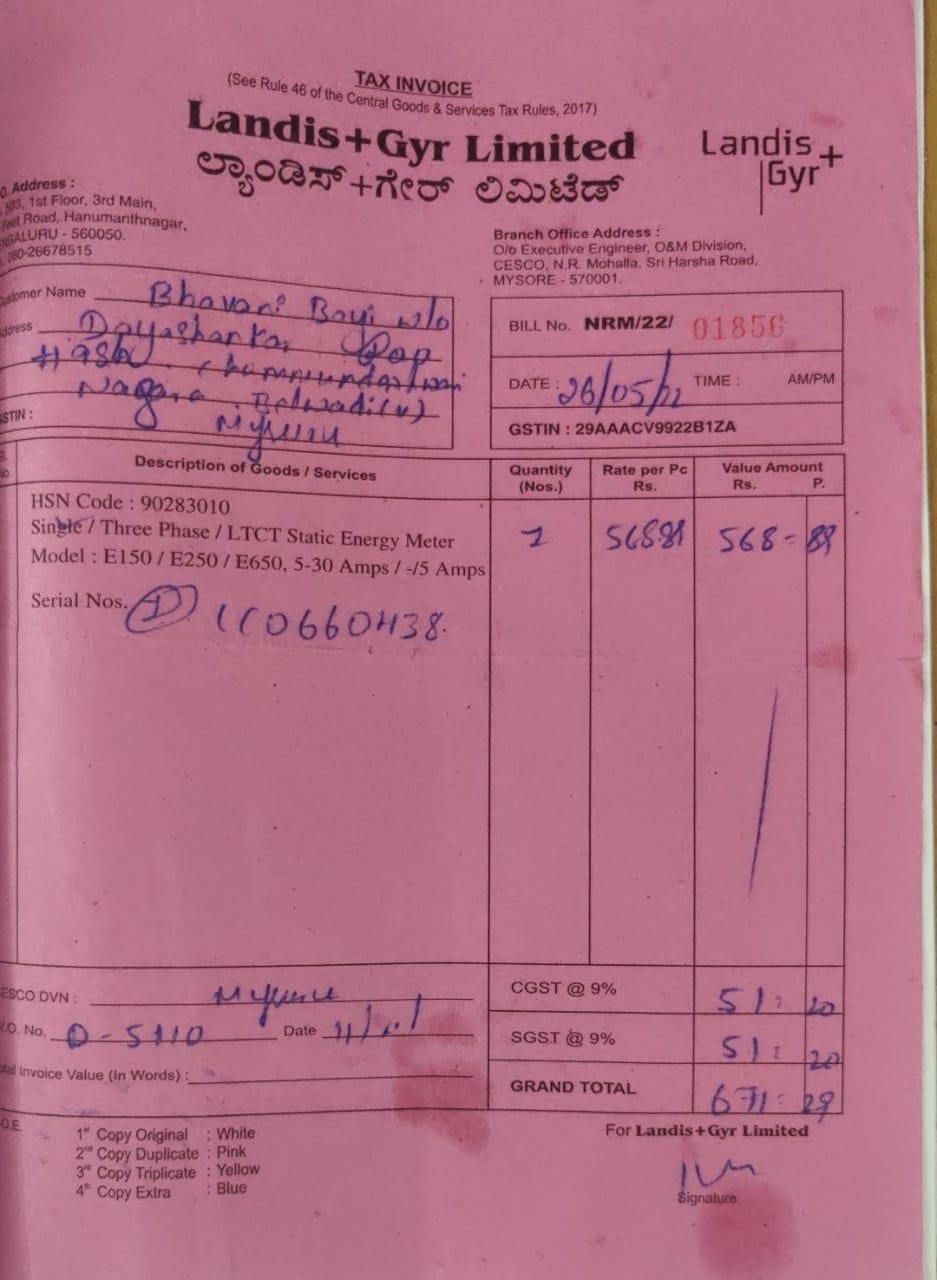 TAX INVOICE
(See Rule 46 of the Central Goods & Services Tax Rules, 2017)
Landis+Gyr Limited
ಲ್ಯಾಂಡಿಸ್+ಗೇರ್ ಲಿಮಿಟೆಡ್
Landis
Gyr+
O. Address :
1st Floor, 3rd Main,
Feet Road, Hanumanthnagar,
NGALURU - 560050.
080-26678515
Branch Office Address :
O/o Executive Engineer, O&M Division,
CESCO, N.R. Mohalla, Sri Harsha Road,
MYSORE - 570001.
ustomer Name Bhavani Bayi w/o
ddress Dayashankar
Nagara
STIN : Mysuru
BILL No. NRM/22/ 01856
DATE : 26/05/22 TIME : AM/PM
GSTIN : 29AAACV9922B1ZA
Description of Goods / Services
Quantity (Nos.)
Rate per Pc Rs.
Value Amount Rs. P.
HSN Code : 90283010
Single / Three Phase / LTCT Static Energy Meter
1 568.89 568 - 89
Model : E150 / E250 / E650, 5-30 Amps / -/5 Amps
Serial Nos. 1 110660438
ESCO DVN : Mysuru
CGST @ 9% 51 : 20
.O. No. D-5110 Date
SGST @ 9% 51 : 20
tal Invoice Value (In Words) :
GRAND TOTAL 671 : 29
O.E.
1st Copy Original : White
2nd Copy Duplicate : Pink
3rd Copy Triplicate : Yellow
4th Copy Extra : Blue
For Landis+Gyr Limited
Signature